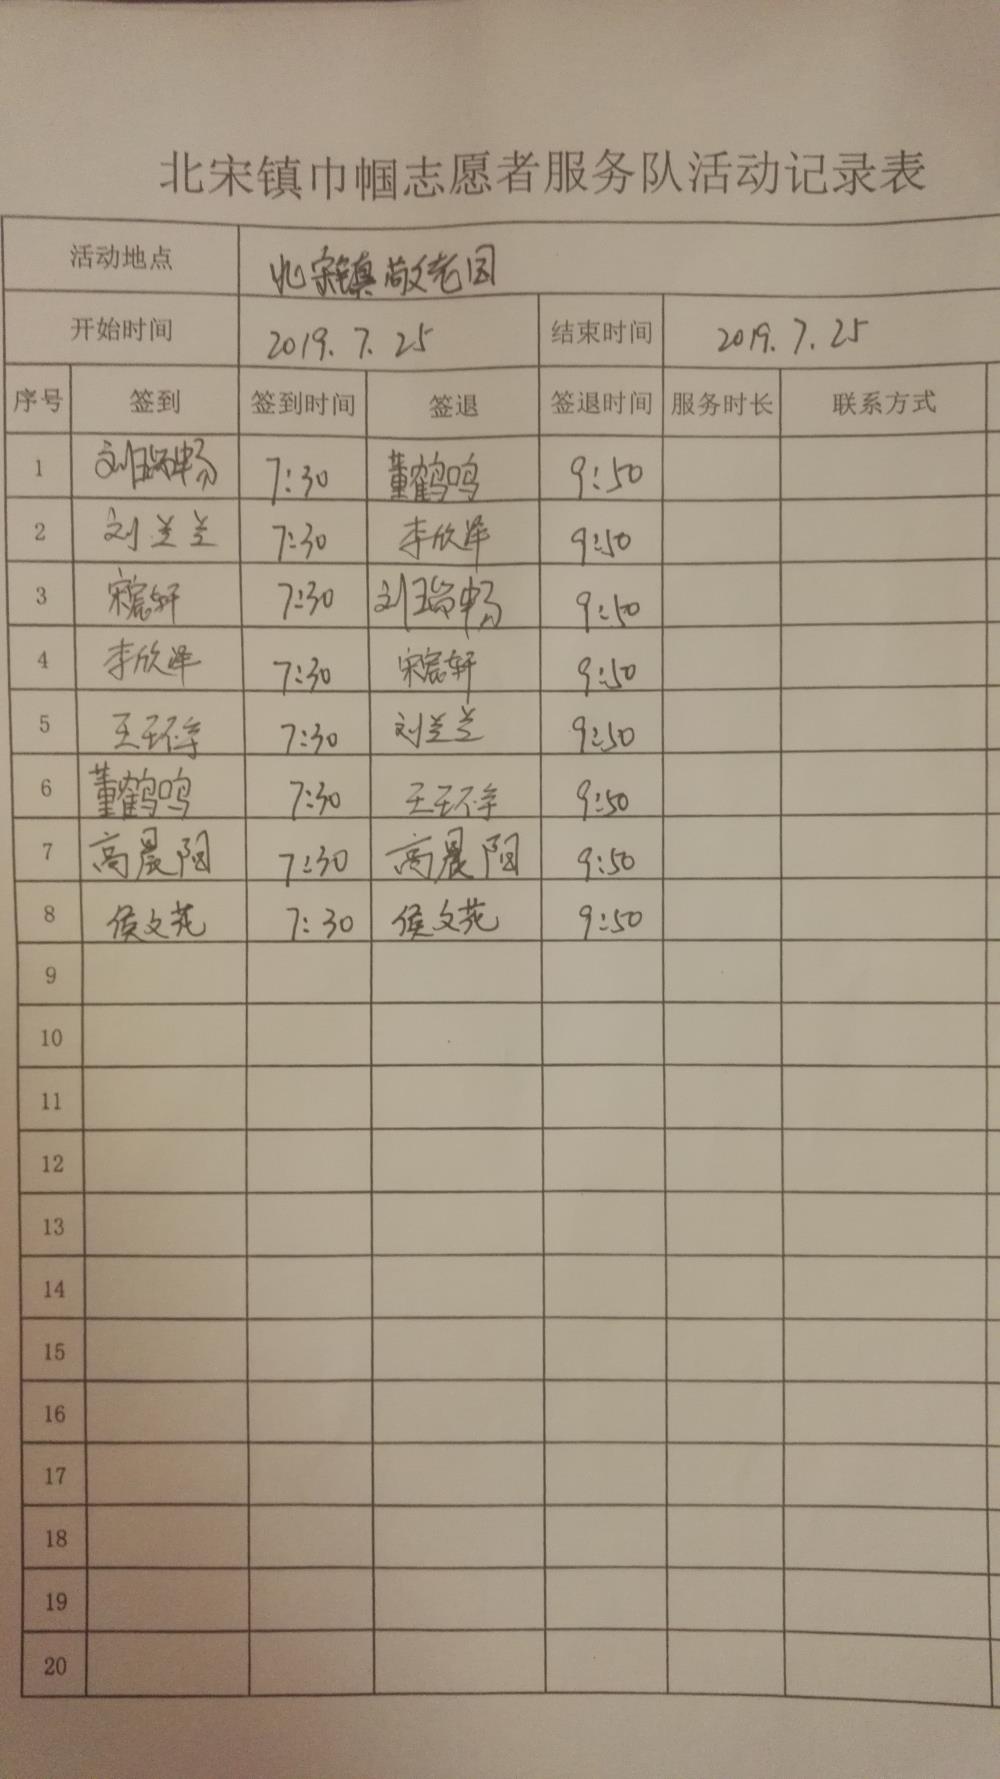 北宋镇巾帼志愿者服务队活动记录表
活动地点 北宋镇敬老园
开始时间 2019.7.25 结束时间 2019.7.25
序号 签到 签到时间 签退 签退时间 服务时长 联系方式
1 刘瑞畅 7:30 董鹤鸣 9:50
2 刘兰兰 7:30 李欣泽 9:50
3 宋宸轩 7:30 刘瑞畅 9:50
4 李欣泽 7:30 宋宸轩 9:50
5 王 7:30 刘兰兰 9:50
6 董鹤鸣 7:30 王 9:50
7 高晨阳 7:30 高晨阳 9:50
8 侯文苑 7:30 侯文苑 9:50
9
10
11
12
13
14
15
16
17
18
19
20